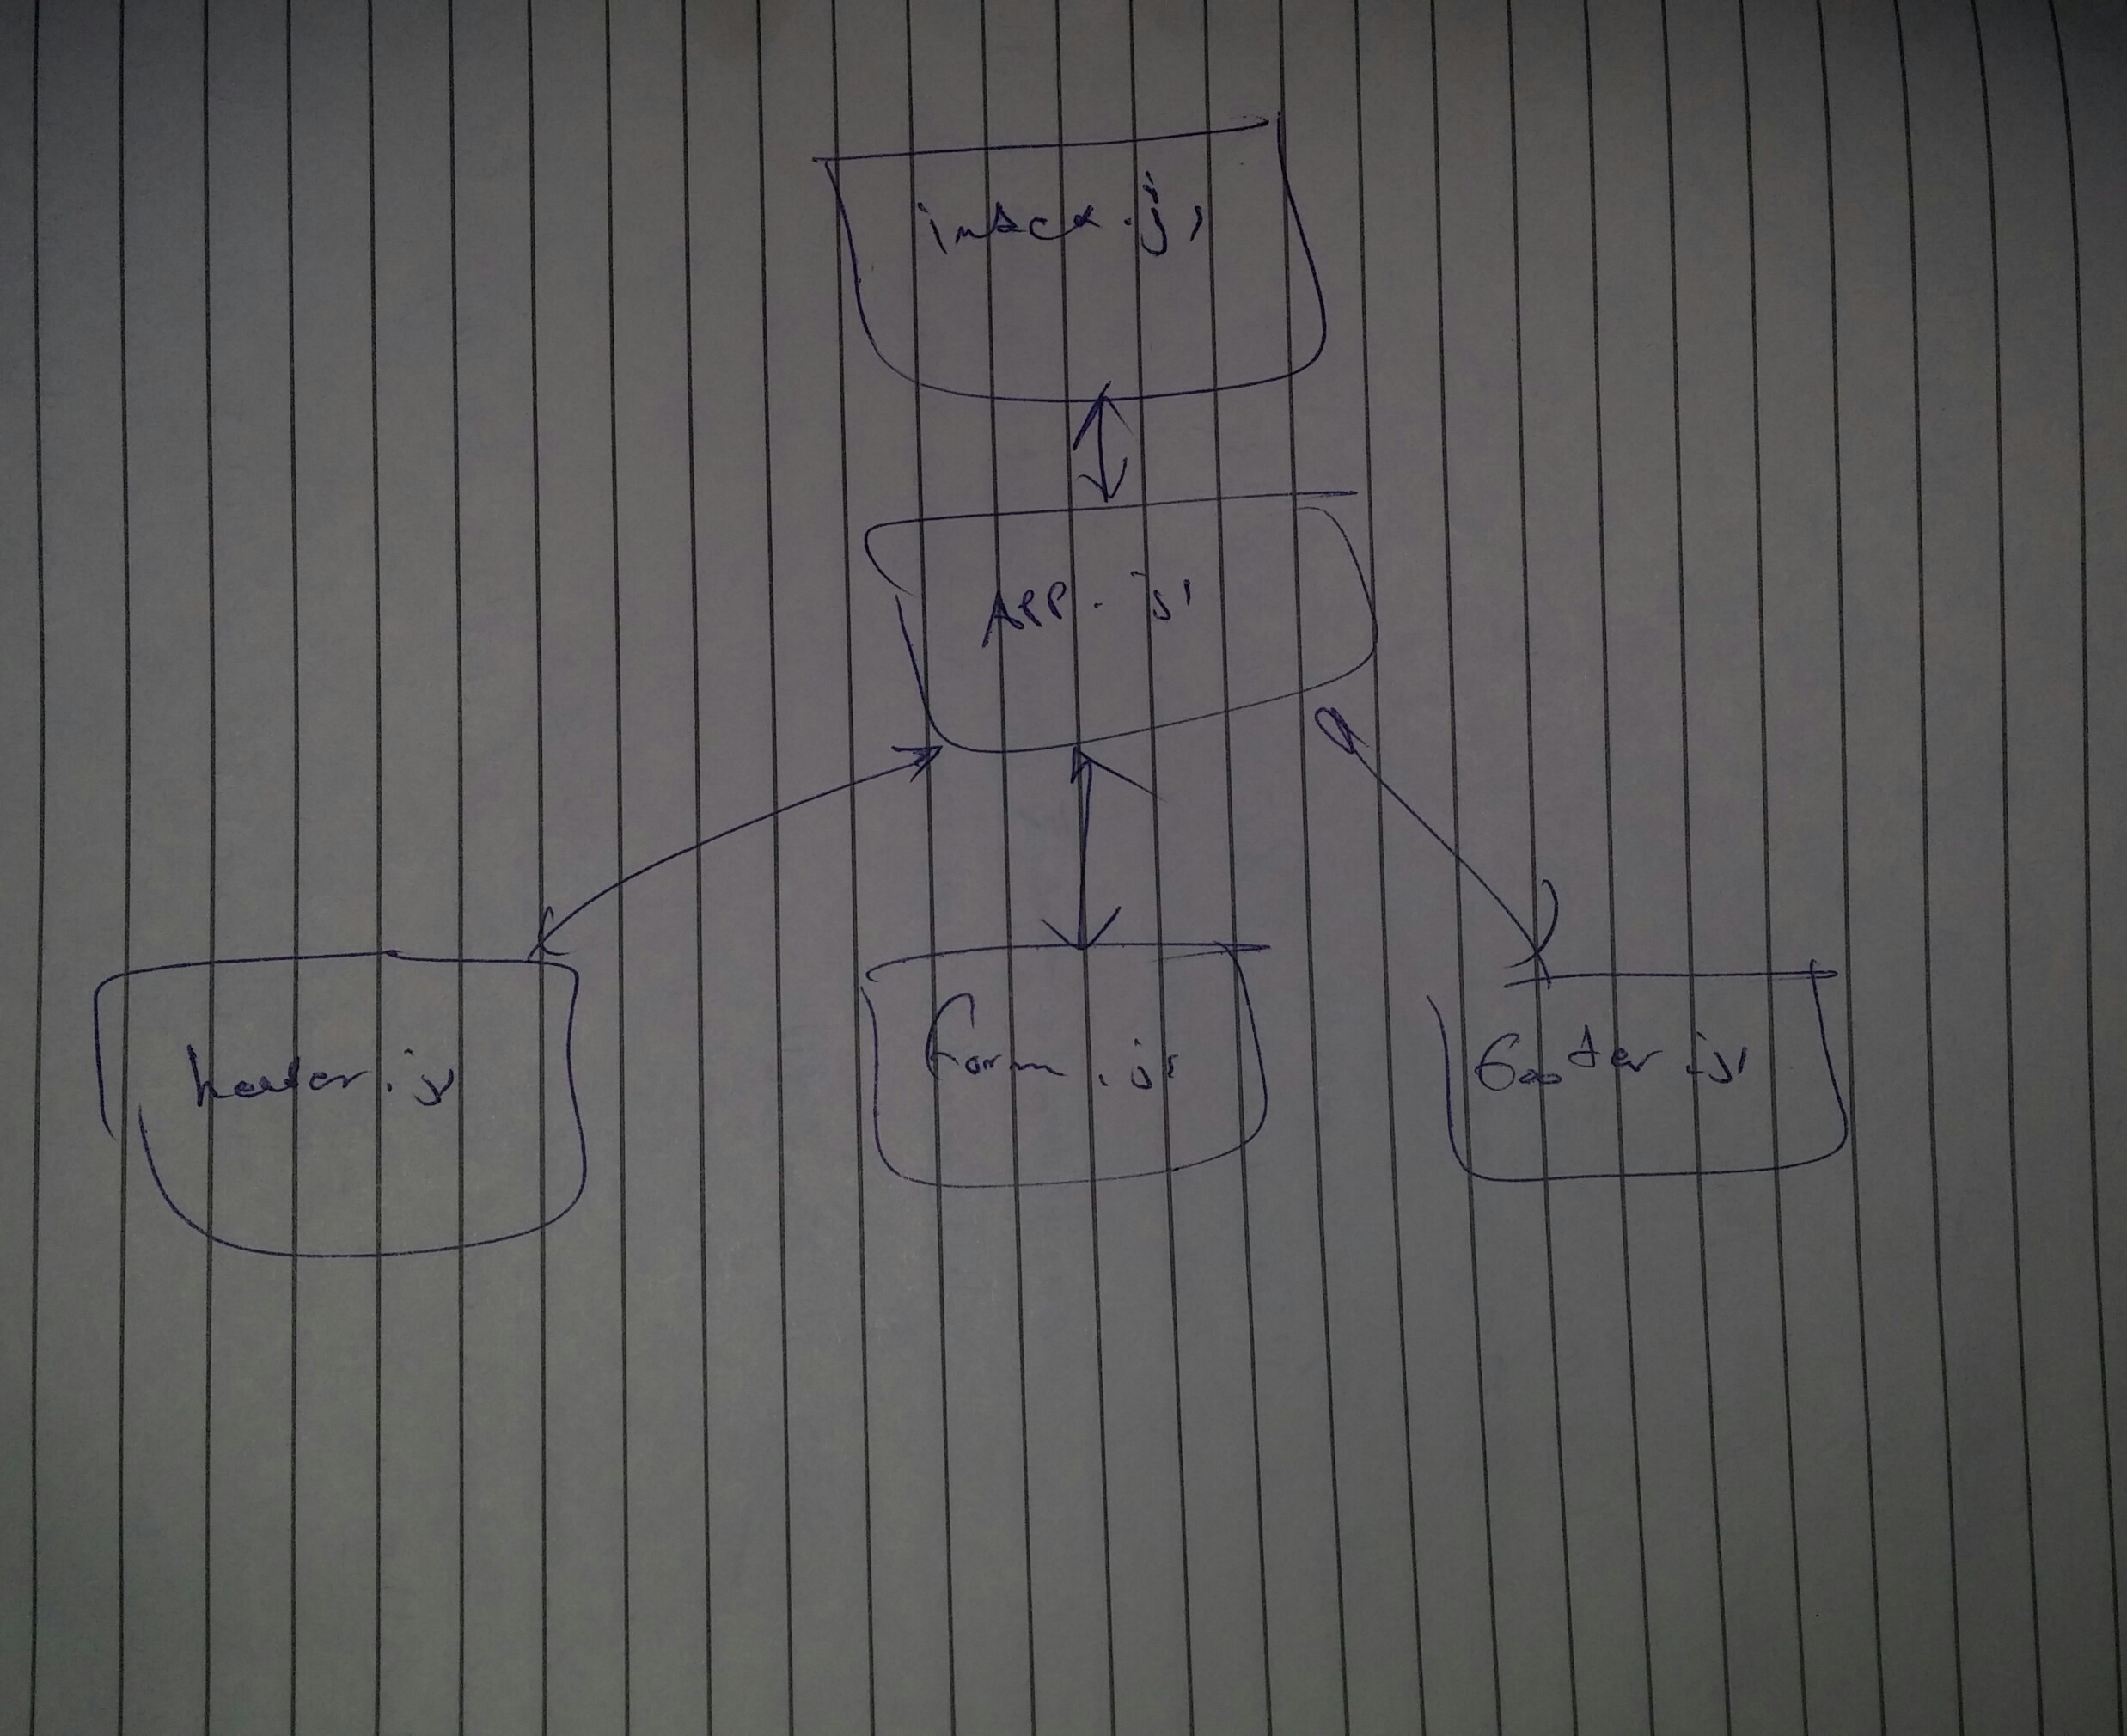 index.js
App.js
header.js
Form.js
Footer.js